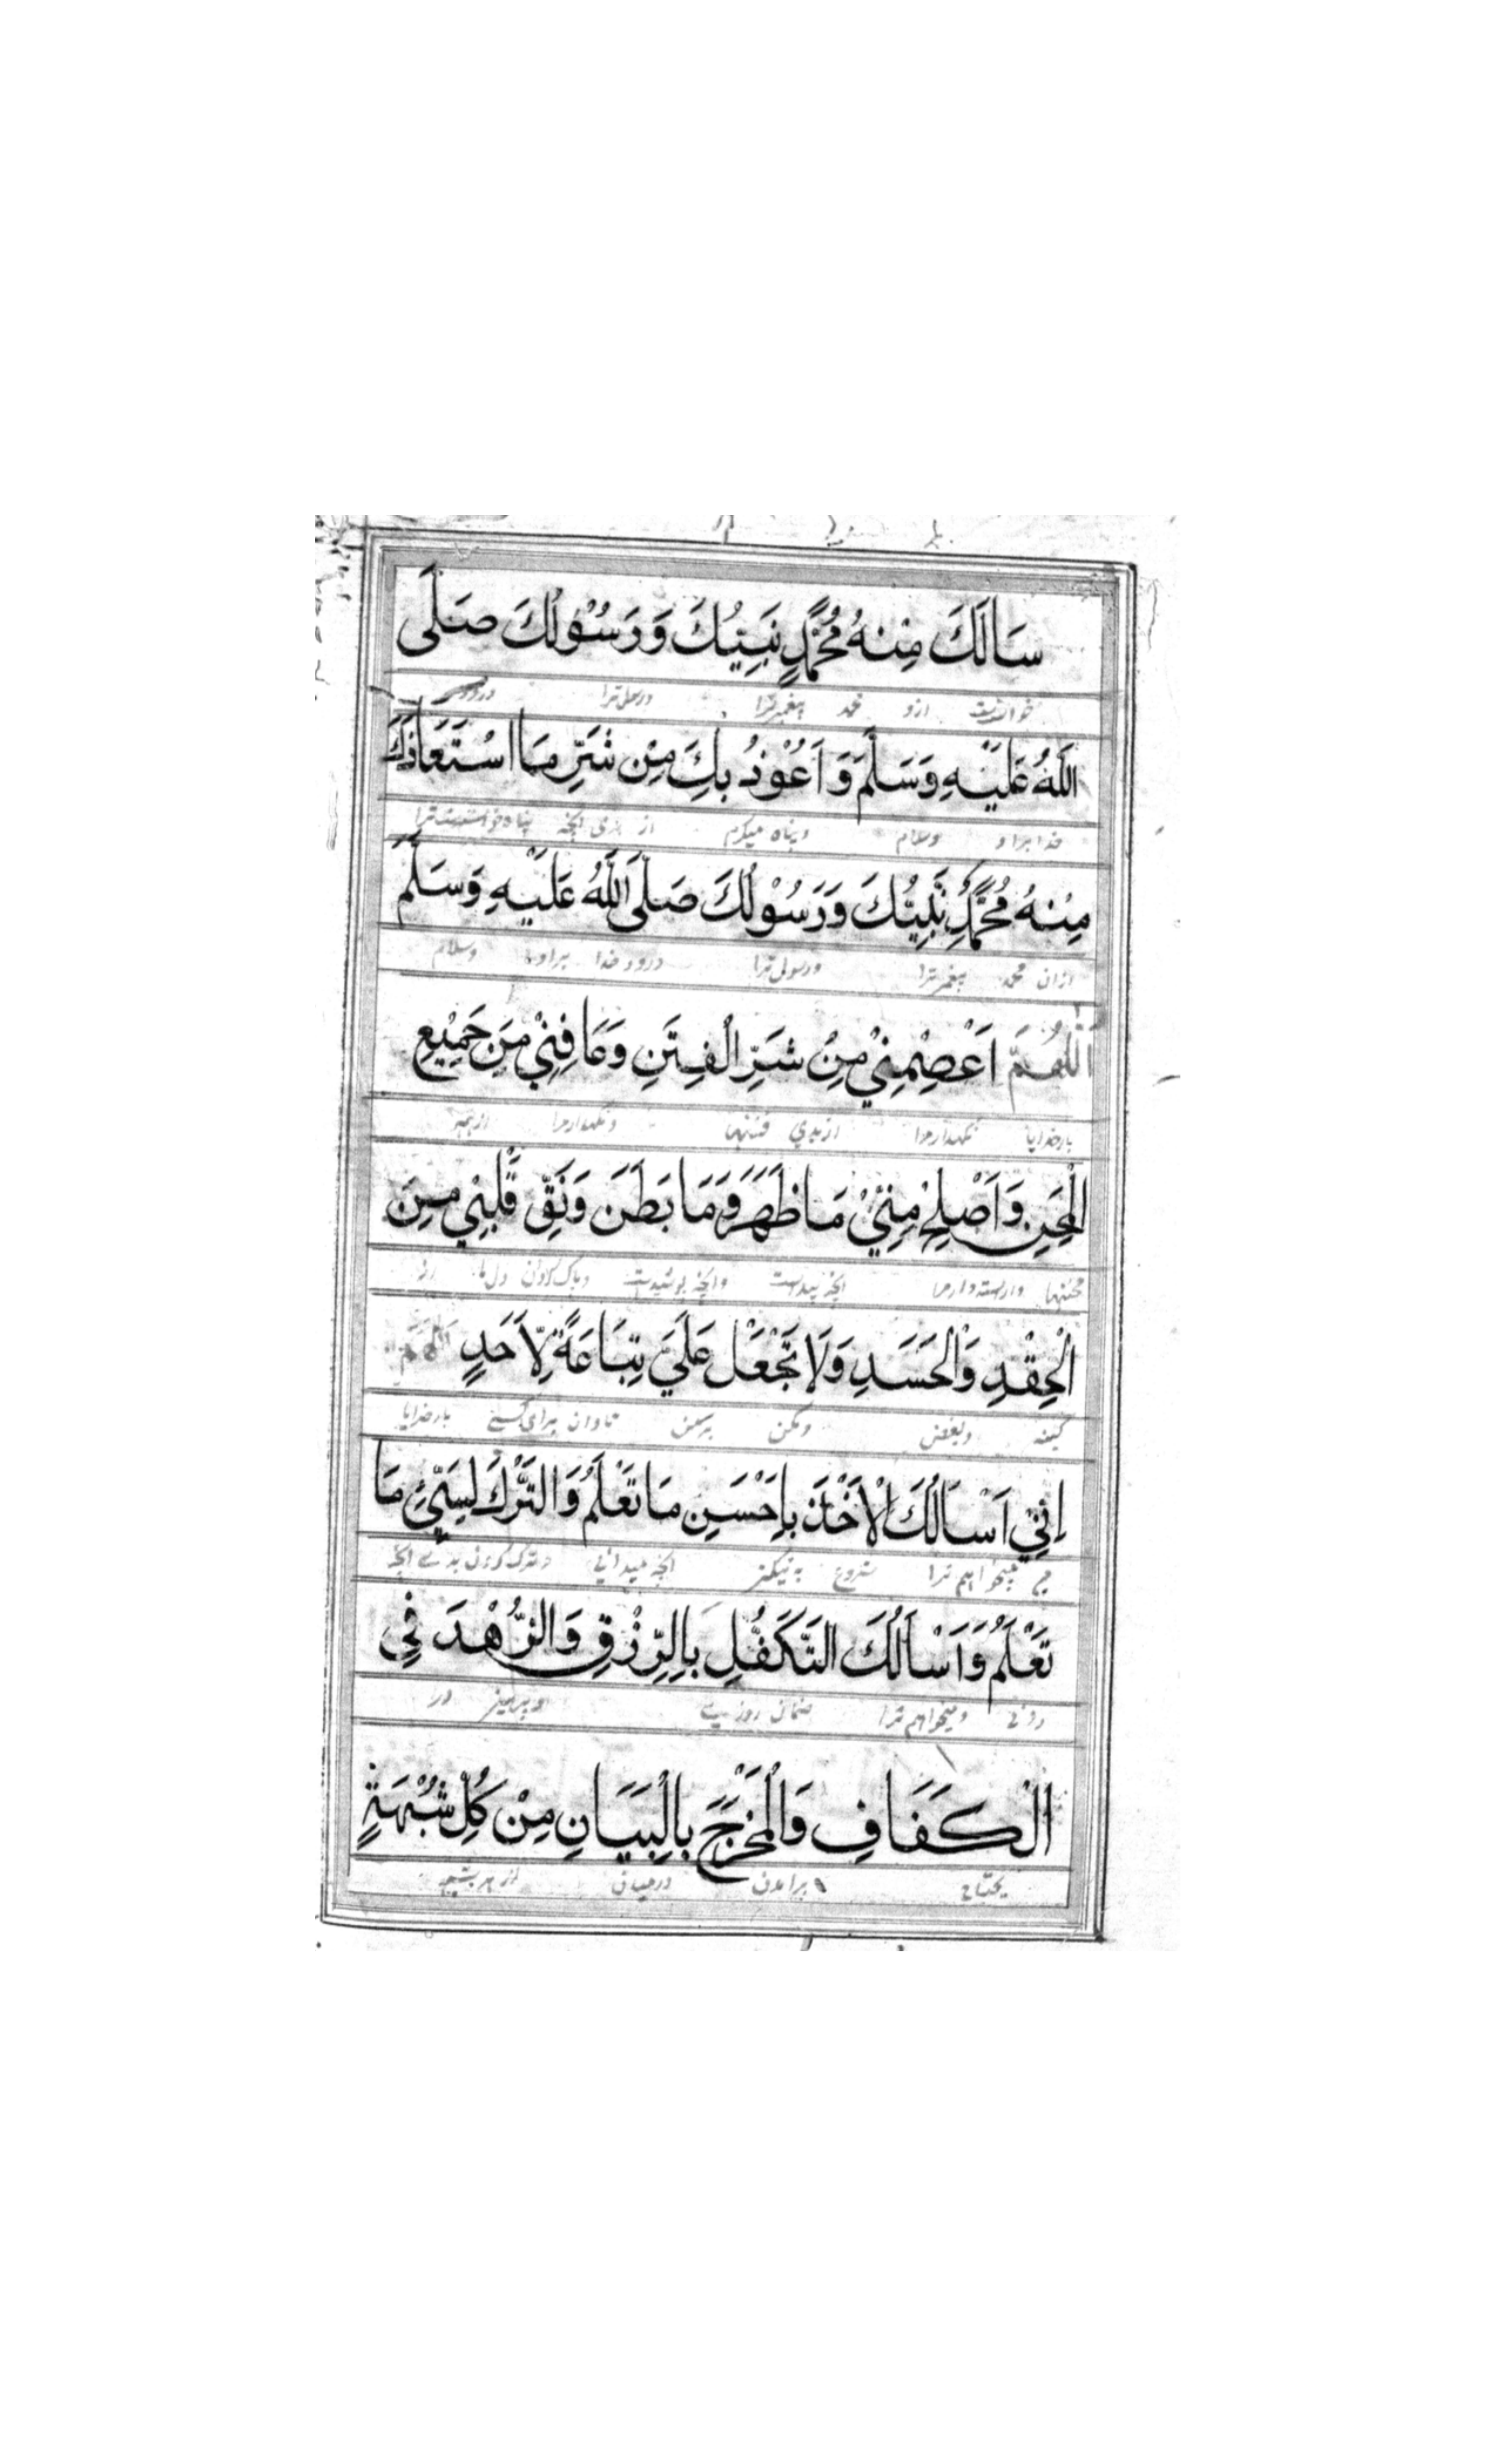 سَاَلَكَ مِنْهُ مُحَمَّدٍ نَبِيُّكَ وَرَسُوْلُكَ صَلَّى
خواستست ازو محمد پیغمبر ترا ورسول ترا درود
اللّٰهُ عَلَيْهِ وَسَلَّمَ وَاَعُوْذُ بِكَ مِنْ شَرِّ مَا اسْتَعَاذَكَ
خدا براو وسلام وپناه میگیرم از بدی انچه پناه خواستست ترا
مِنْهُ مُحَمَّدٌ نَّبِيُّكَ وَرَسُوْلُكَ صَلَّى اللّٰهُ عَلَيْهِ وَسَلَّمَ
ازان محمد پیغمبر ترا ورسول ترا درود خدا براو وسلام
اَللّٰهُمَّ اَعْصِمْنِيْ مِنْ شَرِّ الْفِتَنِ وَعَافِنِيْ مِنَ جَمِيْعِ
بارخدایا نگهدار مرا از بدی فتنها ونگهدار مرا از همه
الْمِحَنِ وَاَصْلِحْ مِنِّيْ مَا ظَهَرَ وَمَا بَطَنَ وَنَقِّ قَلْبِيْ مِنَ
محنتها انچه پیداست وانچه پوشیدست وپاک گردان دل از
الْحِقْدِ وَالْحَسَدِ وَلَا تَجْعَلْ عَلَيَّ تِبَاعَةً لِّاَحَدٍ اللهم
کینه وبغض ومکن بر من تاوان برای کسے بارخدایا
اِنِّيْ اَسْاَلُكَ الْاَخْذَ بِاَحْسَنِ مَا تَعْلَمُ وَالتَّرْكَ لِسَيِّئِ مَا
میخواهم ترا شروع به نیکتر انچه میدانی وترک کردن بدے انچه
تَعْلَمُ وَاَسْاَلُكَ التَّكَفُّلِ بِالرِّزْقِ وَالزُّهْدَ فِي
ومیخواهم ترا ضمان روزی وپرهیز در
الْكَفَافِ وَالْمَخْرَجَ بِالْبَيَانِ مِنْ كُلِّ شُبْهَةٍ
برامدن دربیان از هر شبهه